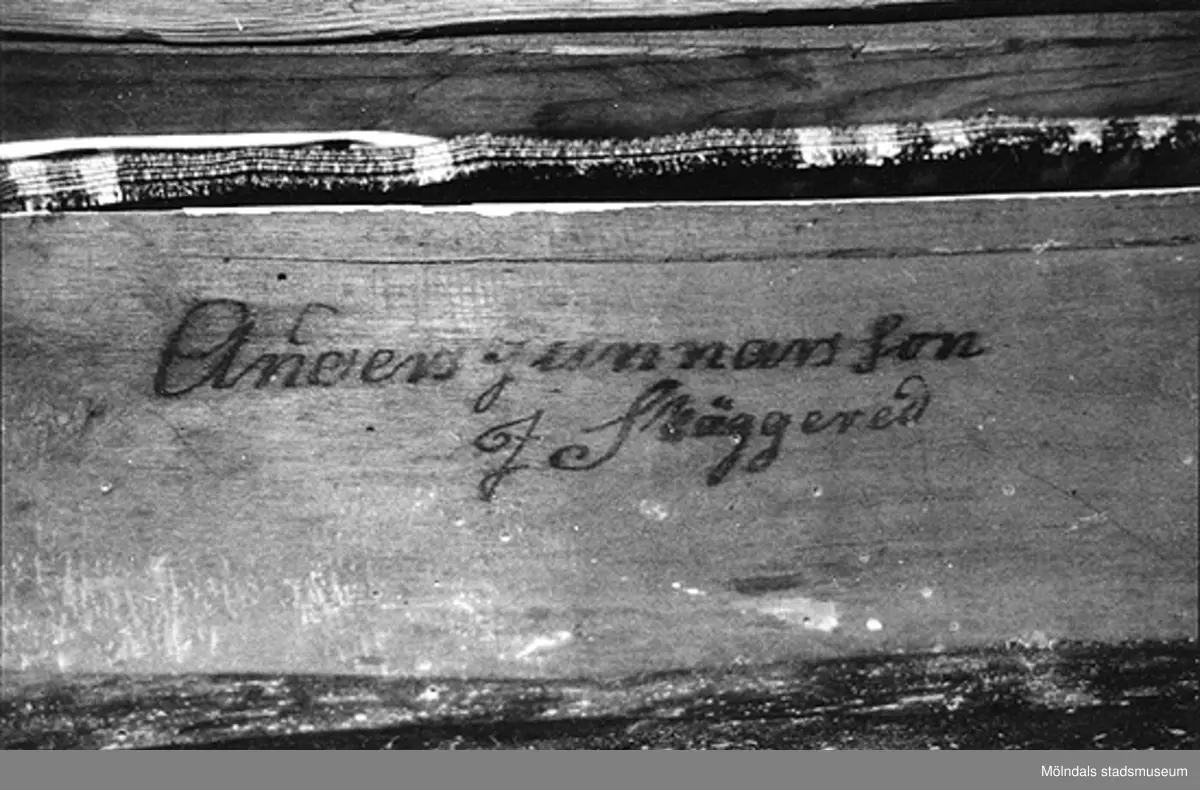 Anders gunnars son
J Skäggered
Mölndals stadsmuseum